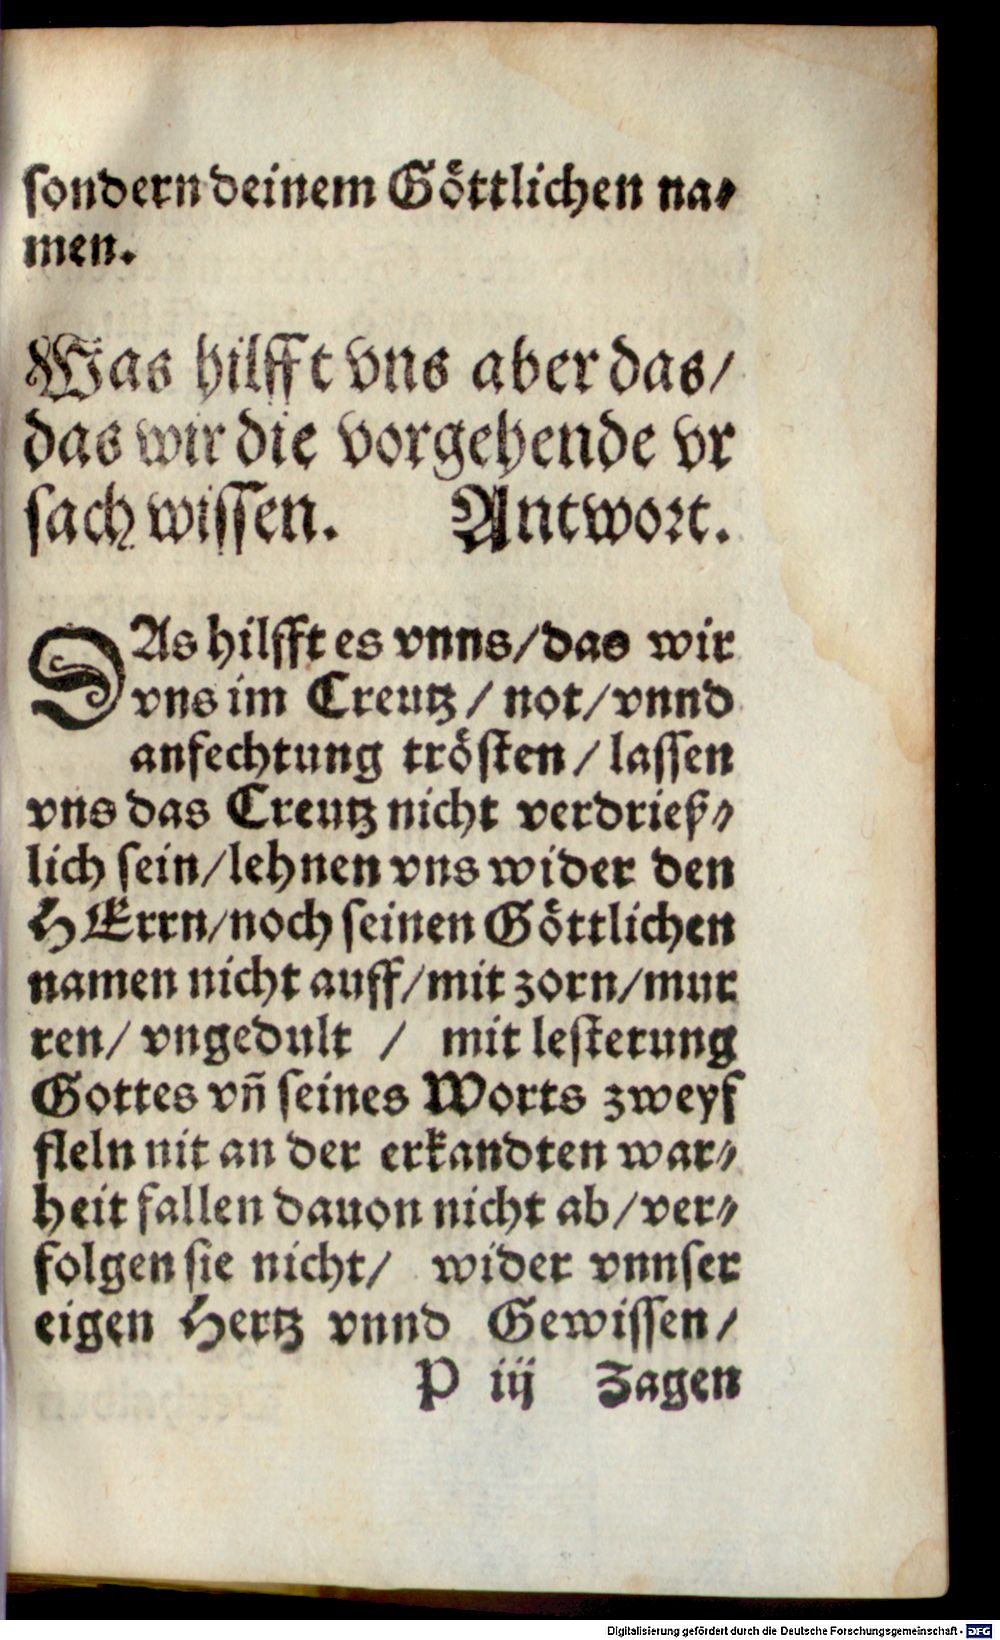 sondern deinem Göttlichen na⸗
men.
Was hilfft vns aber das/
das wir die vorgehende vr
sach wissen. Antwort.
DAs hilfft es vnns/das wir
vns im Creutz / not/vnnd
anfechtung trösten / lassen
vns das Creutz nicht verdrieß⸗
lich sein/lehnen vns wider den
HErrn/noch seinen Göttlichen
namen nicht auff/mit zorn/mur
ren/ vngedult / mit lesterung
Gottes vñ seines Worts zweyf
fleln nit an der erkandten war⸗
heit fallen dauon nicht ab/ver⸗
folgen sie nicht/ wider vnnser
eigen Hertz vnnd Gewissen/
P iij Zagen
Digitalisierung gefördert durch die Deutsche Forschungsgemeinschaft - DFG